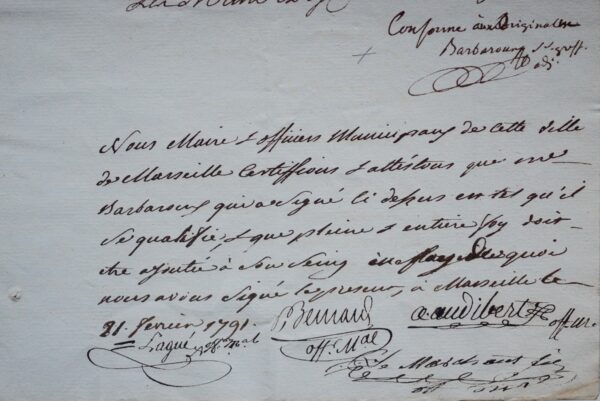 Conforme aux Originaux
Barbaroux s. greff.
adj.
Nous Maire & officiers Municipaux de cette ville
de Marseille Certiffions & attestons que me
Barbaroux qui a Signé Ci dessus est tel qu'il
Se qualifie & que pleine & entiere foy doit
etre ajoutée à Son Seing en foy de quoi
nous avons Signé le present, à Marseille le
21. fevrier 1791.
Bernard
off. Mal
audibert
off. mu.